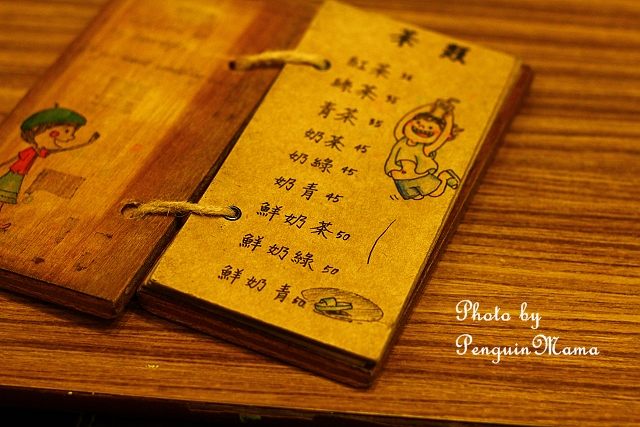 茶飲
紅茶
綠茶 35
青茶 35
奶茶 45
奶綠 45
奶青 45
鮮奶茶 50
鮮奶綠 50
鮮奶青 50
Photo by
PenguinMama